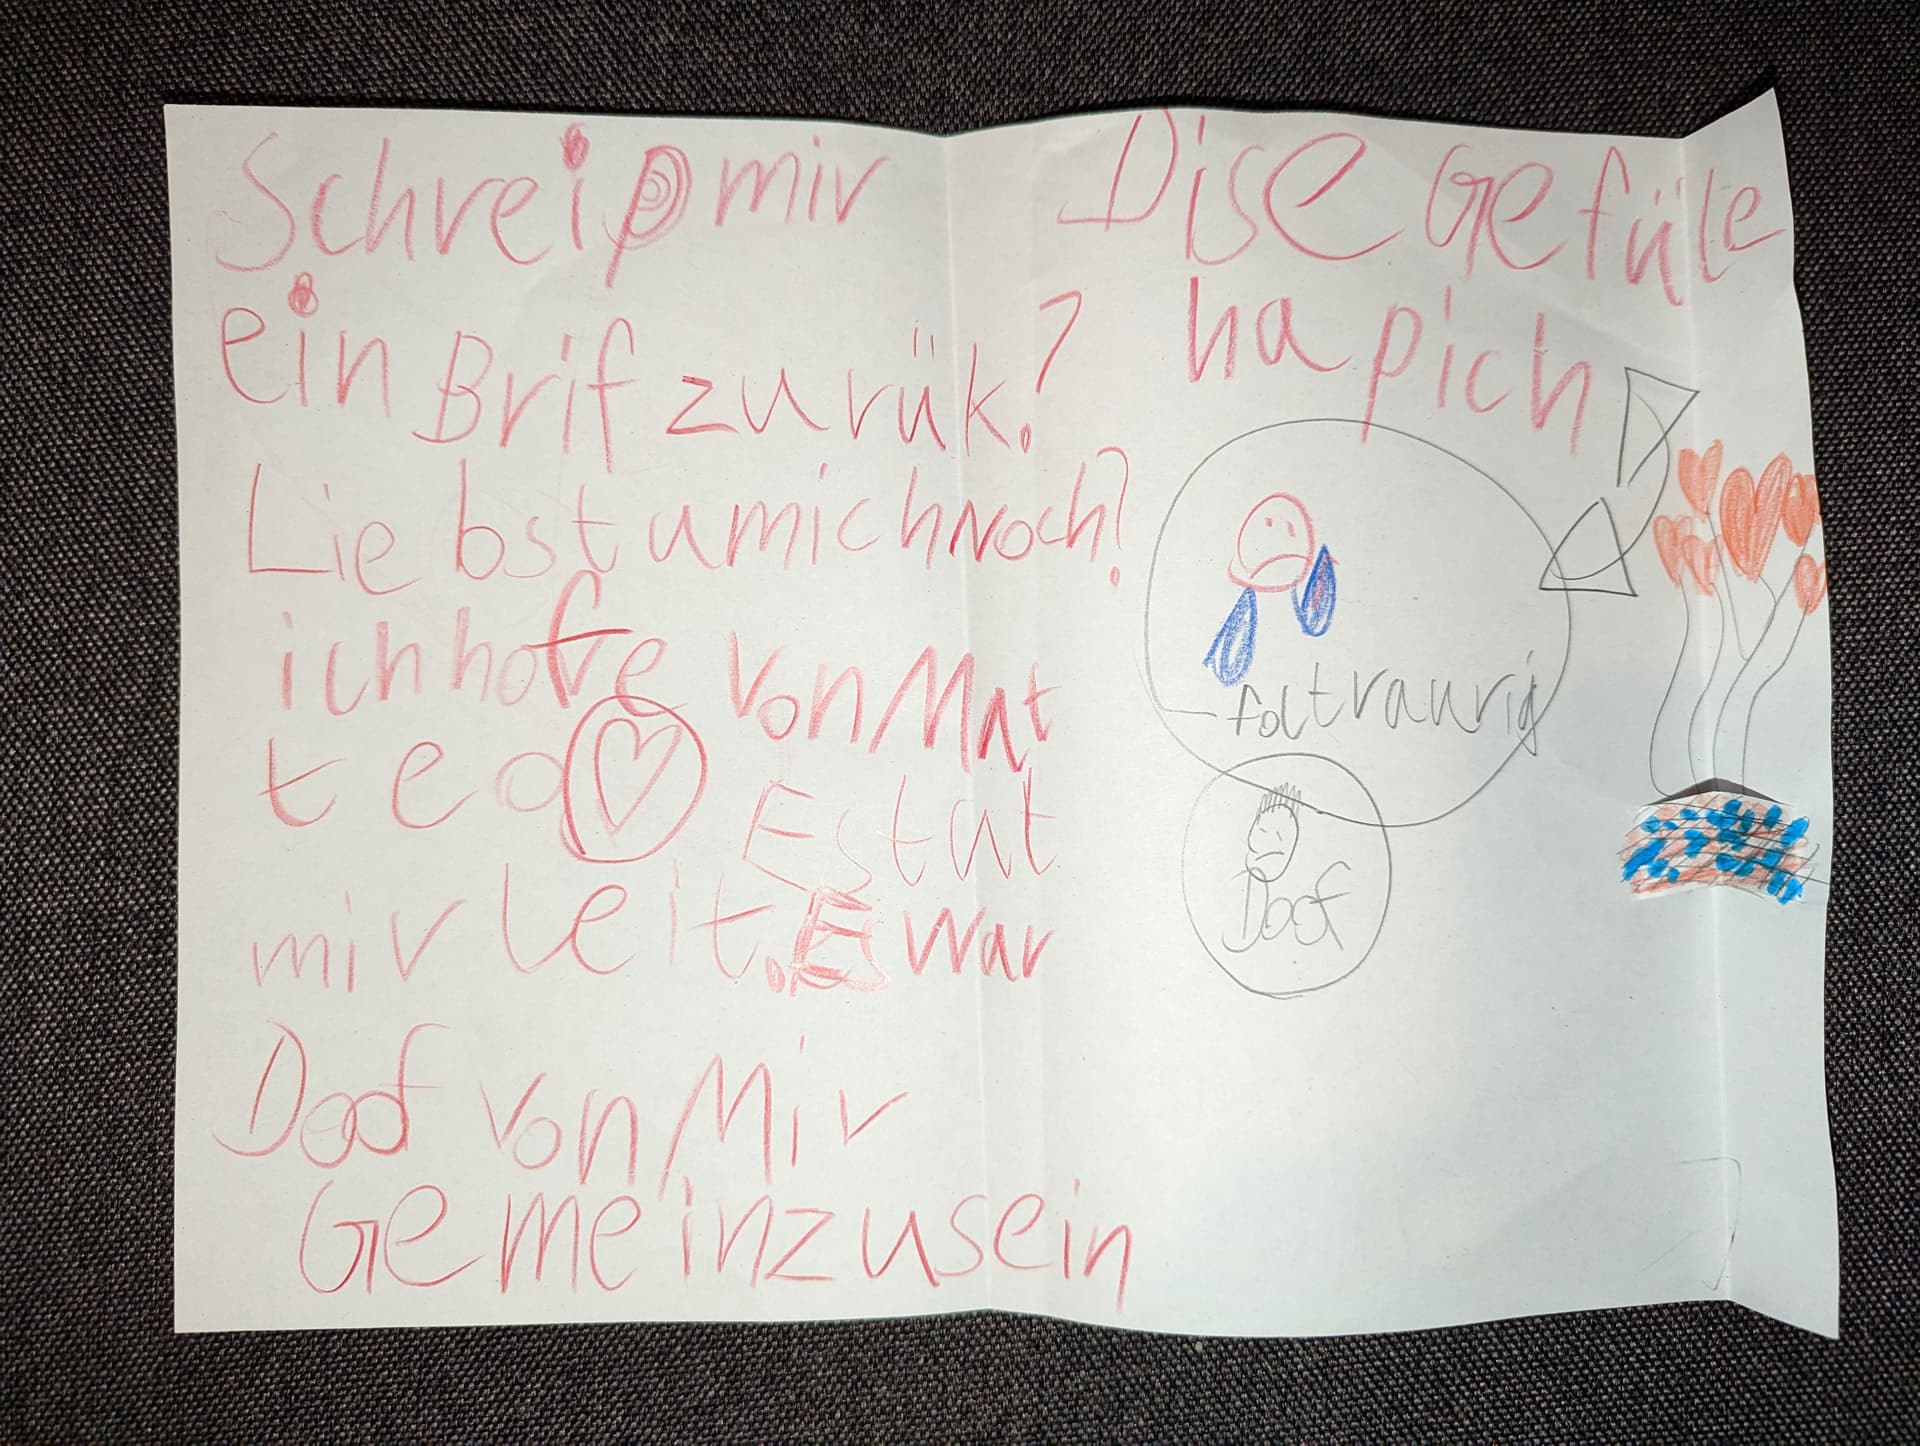 Schreip mir
ein Brif zurük.?
Liebst u mich noch?
ich hofe von Mat
teo Es tut
mir leit. Es war
Doof von Mir
Gemein zu sein
Dise Gefüle
hap ich
foltraurig
Doof